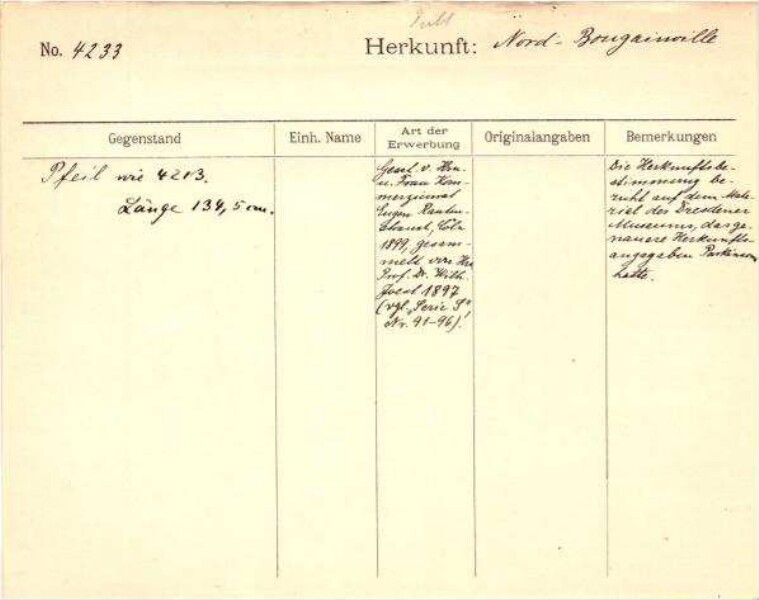 No. 4233
Herkunft: Nord-Bougainville
Gegenstand
Einh. Name
Art der
Erwerbung
Originalangaben
Bemerkungen
Pfeil wie 4213.
Länge 134,5 cm.
Gesch. v. Hrn.
u. Frau Kom-
merzienrat
Eugen Rauten-
strauch, Cöln
1899, gesam-
melt von Hrn
Prof. Dr. Wilh.
Joest 1897
(vgl. "Serie S"
Nr. 91-96)!
Die Herkunftsbe-
stimmung be-
ruht auf dem Mate-
riel des Dresdener
Museums, das ge-
nauere Herkunfts-
angaben Parkinson
hatte.